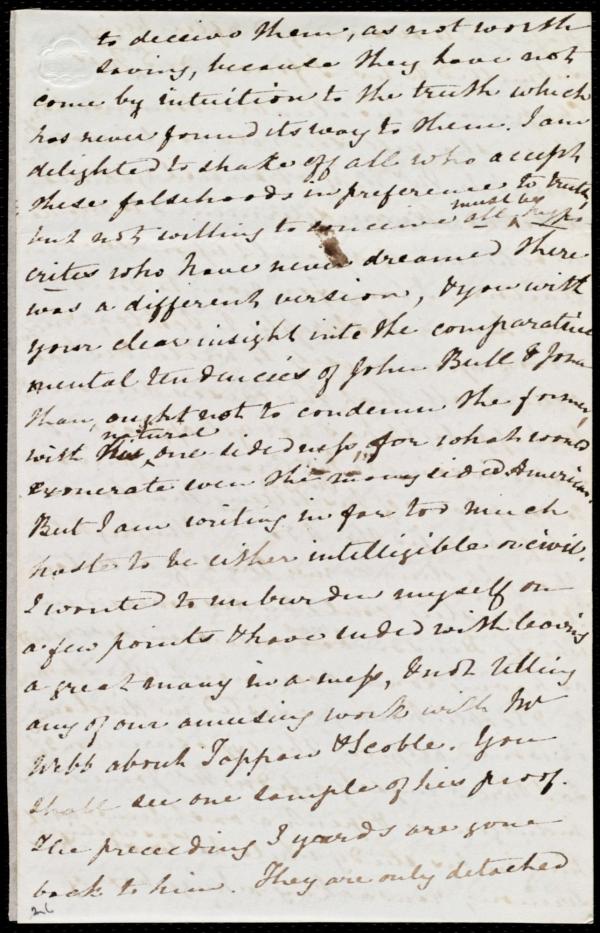 to deceive them, as not worth
saving, because they have not
come by intuition to the truth which
has never found its way to them. I am
delighted to shake off all who accept
these falsehoods in preference to truth,
but not willing to conceive all must be hypo
crites who have never dreamed there
was a different version, & you with
your clear insight into the comparative
mental tendencies of John Bull & Jona
than, ought not to condemn the former,
with this natural one sidedness, for what would
exonerate even the many sided American.
But I am writing in far too much
haste to be either intelligible or civil.
I wanted to unburden myself on
a few points & have ended with leaving
a great many in a mess, & not telling
any of our amusing work with Mr
Webb about Tappan & Scoble. You
shall see one sample of his proof.
The preceding 3 yards are gone
back to him. They are only detached
26